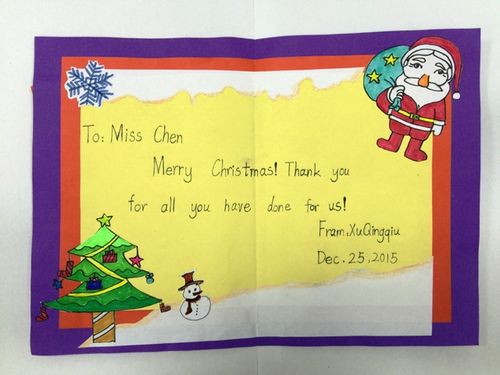 To: Miss Chen
Merry Christmas! Thank you
for all you have done for us!
Fram: XuQingqiu
Dec. 25, 2015